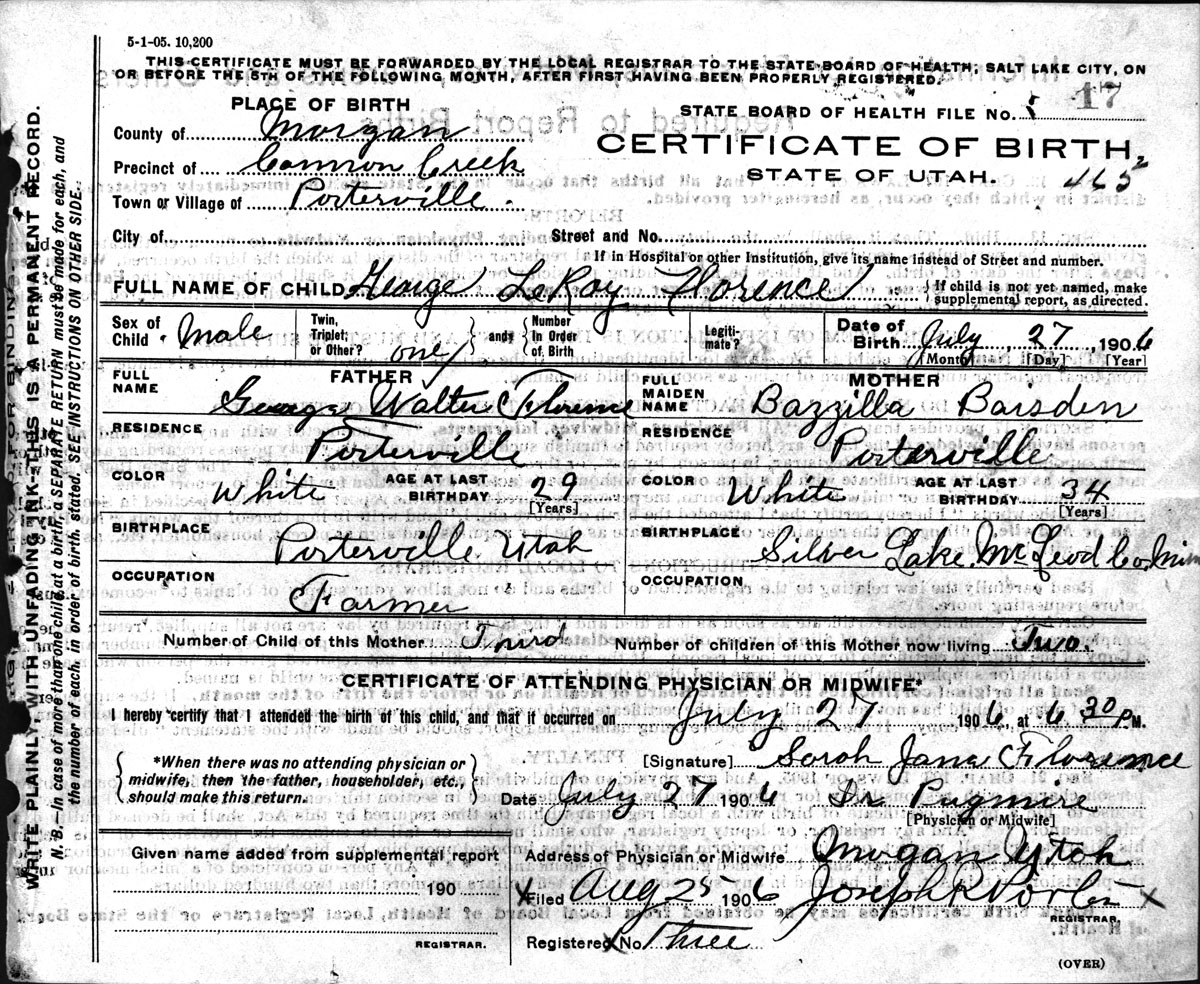 5-1-05. 10,200
THIS CERTIFICATE MUST BE FORWARDED BY THE LOCAL REGISTRAR TO THE STATE BOARD OF HEALTH, SALT LAKE CITY, ON
OR BEFORE THE 5TH OF THE FOLLOWING MONTH, AFTER FIRST HAVING BEEN PROPERLY REGISTERED.
WRITE PLAINLY, WITH UNFADING INK—THIS IS A PERMANENT RECORD.
N. B.—In case of more than one child at a birth, a SEPARATE RETURN must be made for each, and
the number of each, in order of birth, stated. SEE INSTRUCTIONS ON OTHER SIDE.
PLACE OF BIRTH
STATE BOARD OF HEALTH FILE No. 17
County of Morgan
CERTIFICATE OF BIRTH,
Precinct of Cannon Creek
STATE OF UTAH. 465
Town or Village of Porterville
City of Street and No.
If in Hospital or other Institution, give its name instead of Street and number.
FULL NAME OF CHILD George LeRoy Florence { If child is not yet named, make
supplemental report, as directed.
Sex of Child Male Twin, Triplet, or Other? one and Number in Order of Birth Legiti-mate? Date of Birth July 27, 1906
[Month] [Day] [Year]
FATHER MOTHER
FULL NAME George Walter Florence FULL MAIDEN NAME Bazzilla Barsden
RESIDENCE Porterville RESIDENCE Porterville
COLOR White AGE AT LAST BIRTHDAY 29 [Years] COLOR White AGE AT LAST BIRTHDAY 34 [Years]
BIRTHPLACE Porterville Utah BIRTHPLACE Silver Lake, McLeod Co. Min
OCCUPATION Farmer OCCUPATION
Number of Child of this Mother Third Number of children of this Mother now living Two.
CERTIFICATE OF ATTENDING PHYSICIAN OR MIDWIFE*
I hereby certify that I attended the birth of this child, and that it occurred on July 27 1906, at 6 30 P.M.
*When there was no attending physician or
midwife, then the father, householder, etc.,
should make this return.
[Signature] Sarah Jane Florence
Date July 27 1906 Dr Pugmire
[Physician or Midwife]
Given name added from supplemental report
190
REGISTRAR.
Address of Physician or Midwife Morgan Utah
Filed Aug 25 1906 Joseph R
REGISTRAR.
Registered No. Three
(OVER)